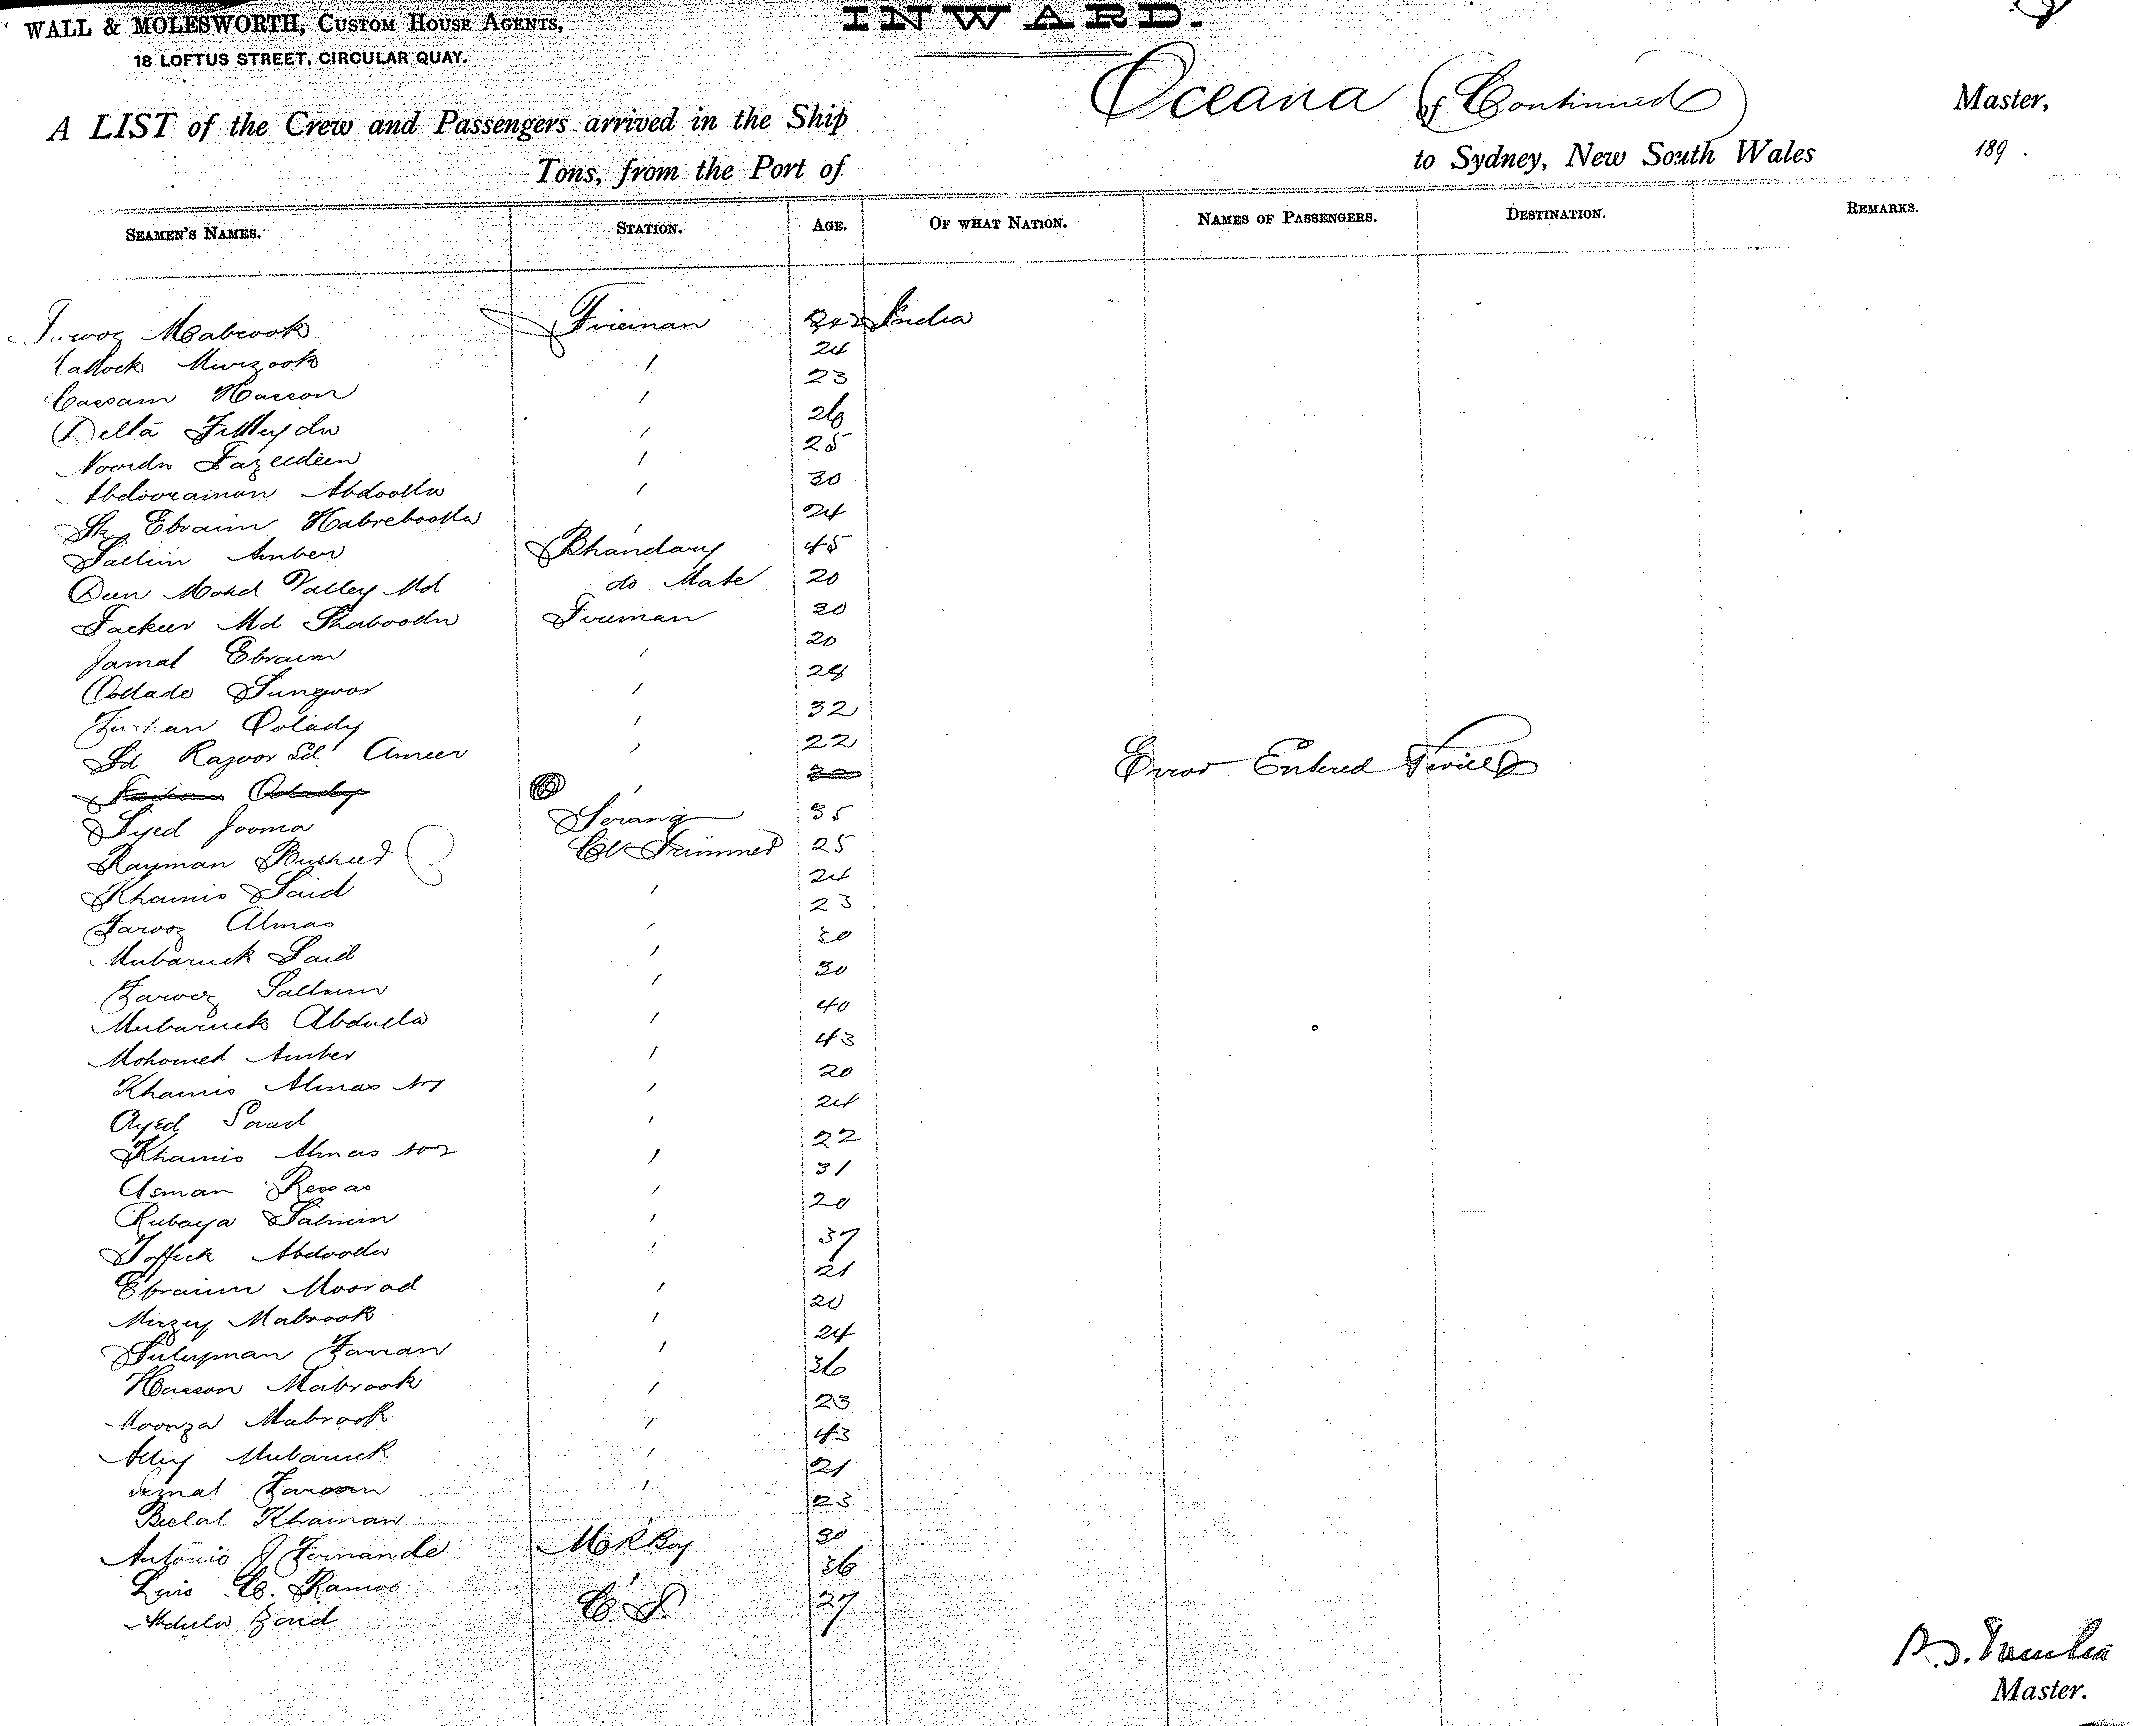 WALL & MOLESWORTH, CUSTOM HOUSE AGENTS,
18 LOFTUS STREET, CIRCULAR QUAY.
INWARD.
A LIST of the Crew and Passengers arrived in the Ship Oceana (Continued) Master,
Tons, from the Port of to Sydney, New South Wales 189 .
SEAMEN'S NAMES. STATION. AGE. OF WHAT NATION. NAMES OF PASSENGERS. DESTINATION. REMARKS.
Mabrook Fireman India
Murzook ' 24
Cassam Hasson ' 23
Della ' 26
Noordn Fazeedeen ' 25
Abdooraman Abdoolla ' 30
Sk Ebraim ' 24
Sallim Amber Bhandary 45
Deen Mohd Valley Md do Mate 20
Fackeer Md Shaboodn Fireman 20
Jamal Ebraim ' 20
Sungoor ' 28
Colady ' 32
Sd Rajoor Sd Ameer ' 22
Colady ' Error Entered Twice
Syed Jooma Serang 35
Rayman Busheed Cl Trimmer 25
Khamis Said ' 24
Farooz Almas ' 23
Mubaruck Said '
Farooz Sallmin ' 30
Mubaruck Abdulla ' 40
Mohomed Amber ' 43
Khamis Almas No1 ' 20
Ayed Saad ' 24
Khamis Almas No2 ' 22
Osman ' 31
Rubaya Salmin ' 20
Toffick Abdoolla ' 37
Ebraim Moorad ' 21
Mabrook ' 20
Suleyman Farran ' 24
Hasson Mabrook ' 36
Moonza Mabrook ' 23
Mubaruck ' 43
Faraan ' 21
Beelal Khaman 23
Antonio J Fernande M R Boy 30
Luis C. Ramos ' 36
Abdula Zaid C. S. 27
Master.